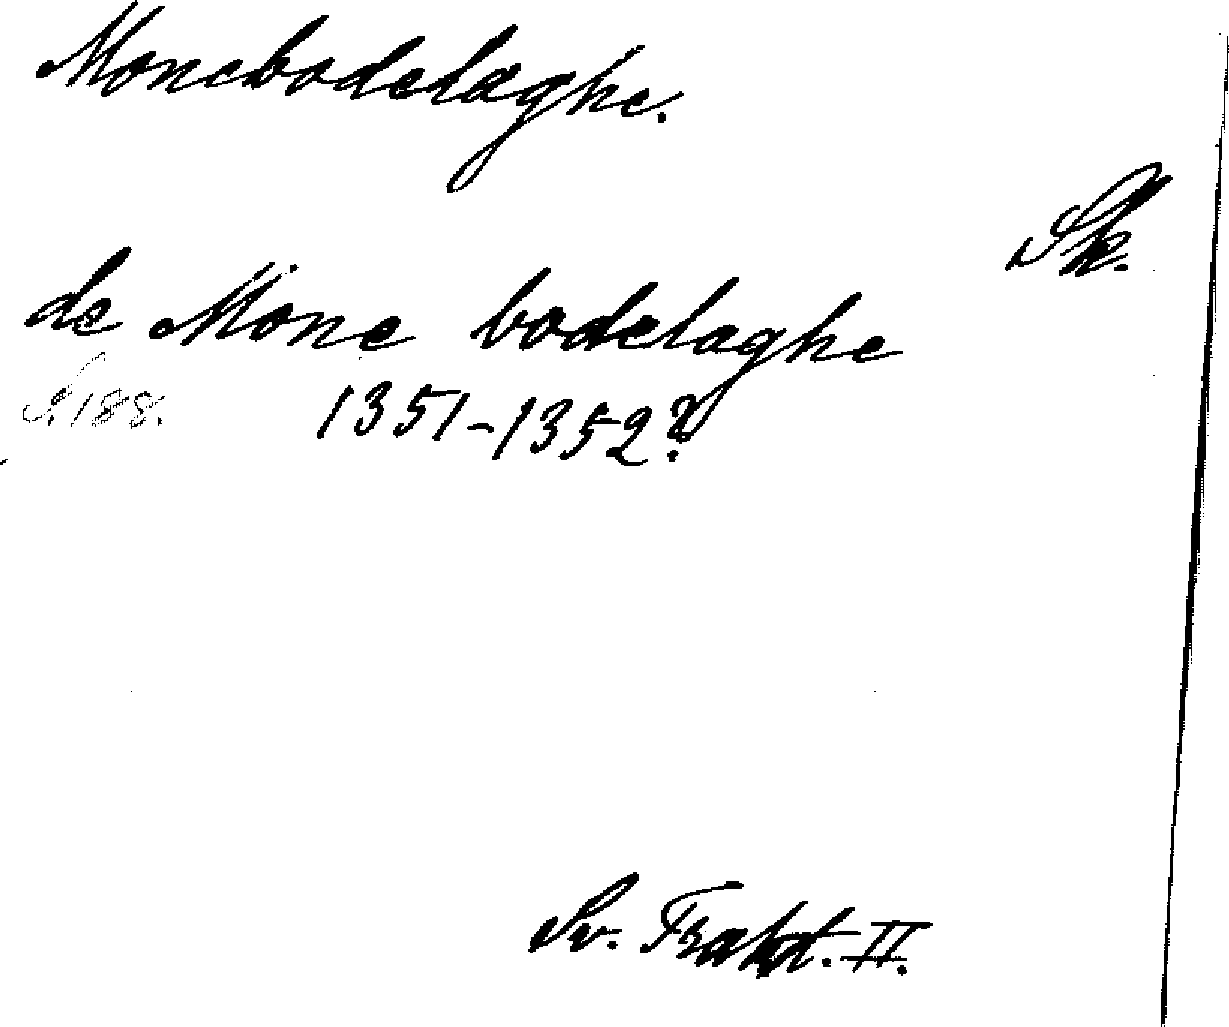 Monebodelaghe.
Sk.
de Mone bodelaghe
S. 188. 1351-1352?
Sv. Trakt. II.